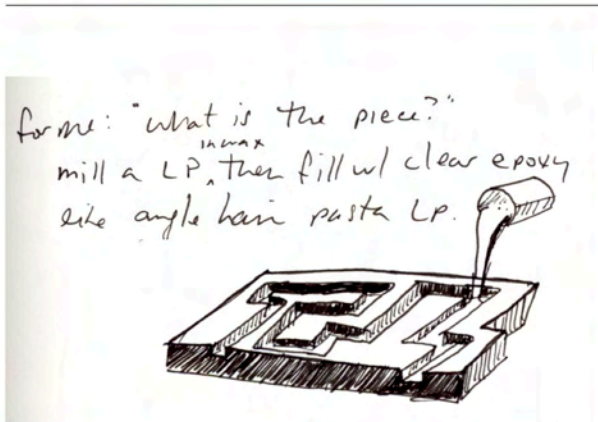 for me: "what is the piece?"
in wax
mill a LP, then fill w/ clear epoxy
like angle hair pasta LP.